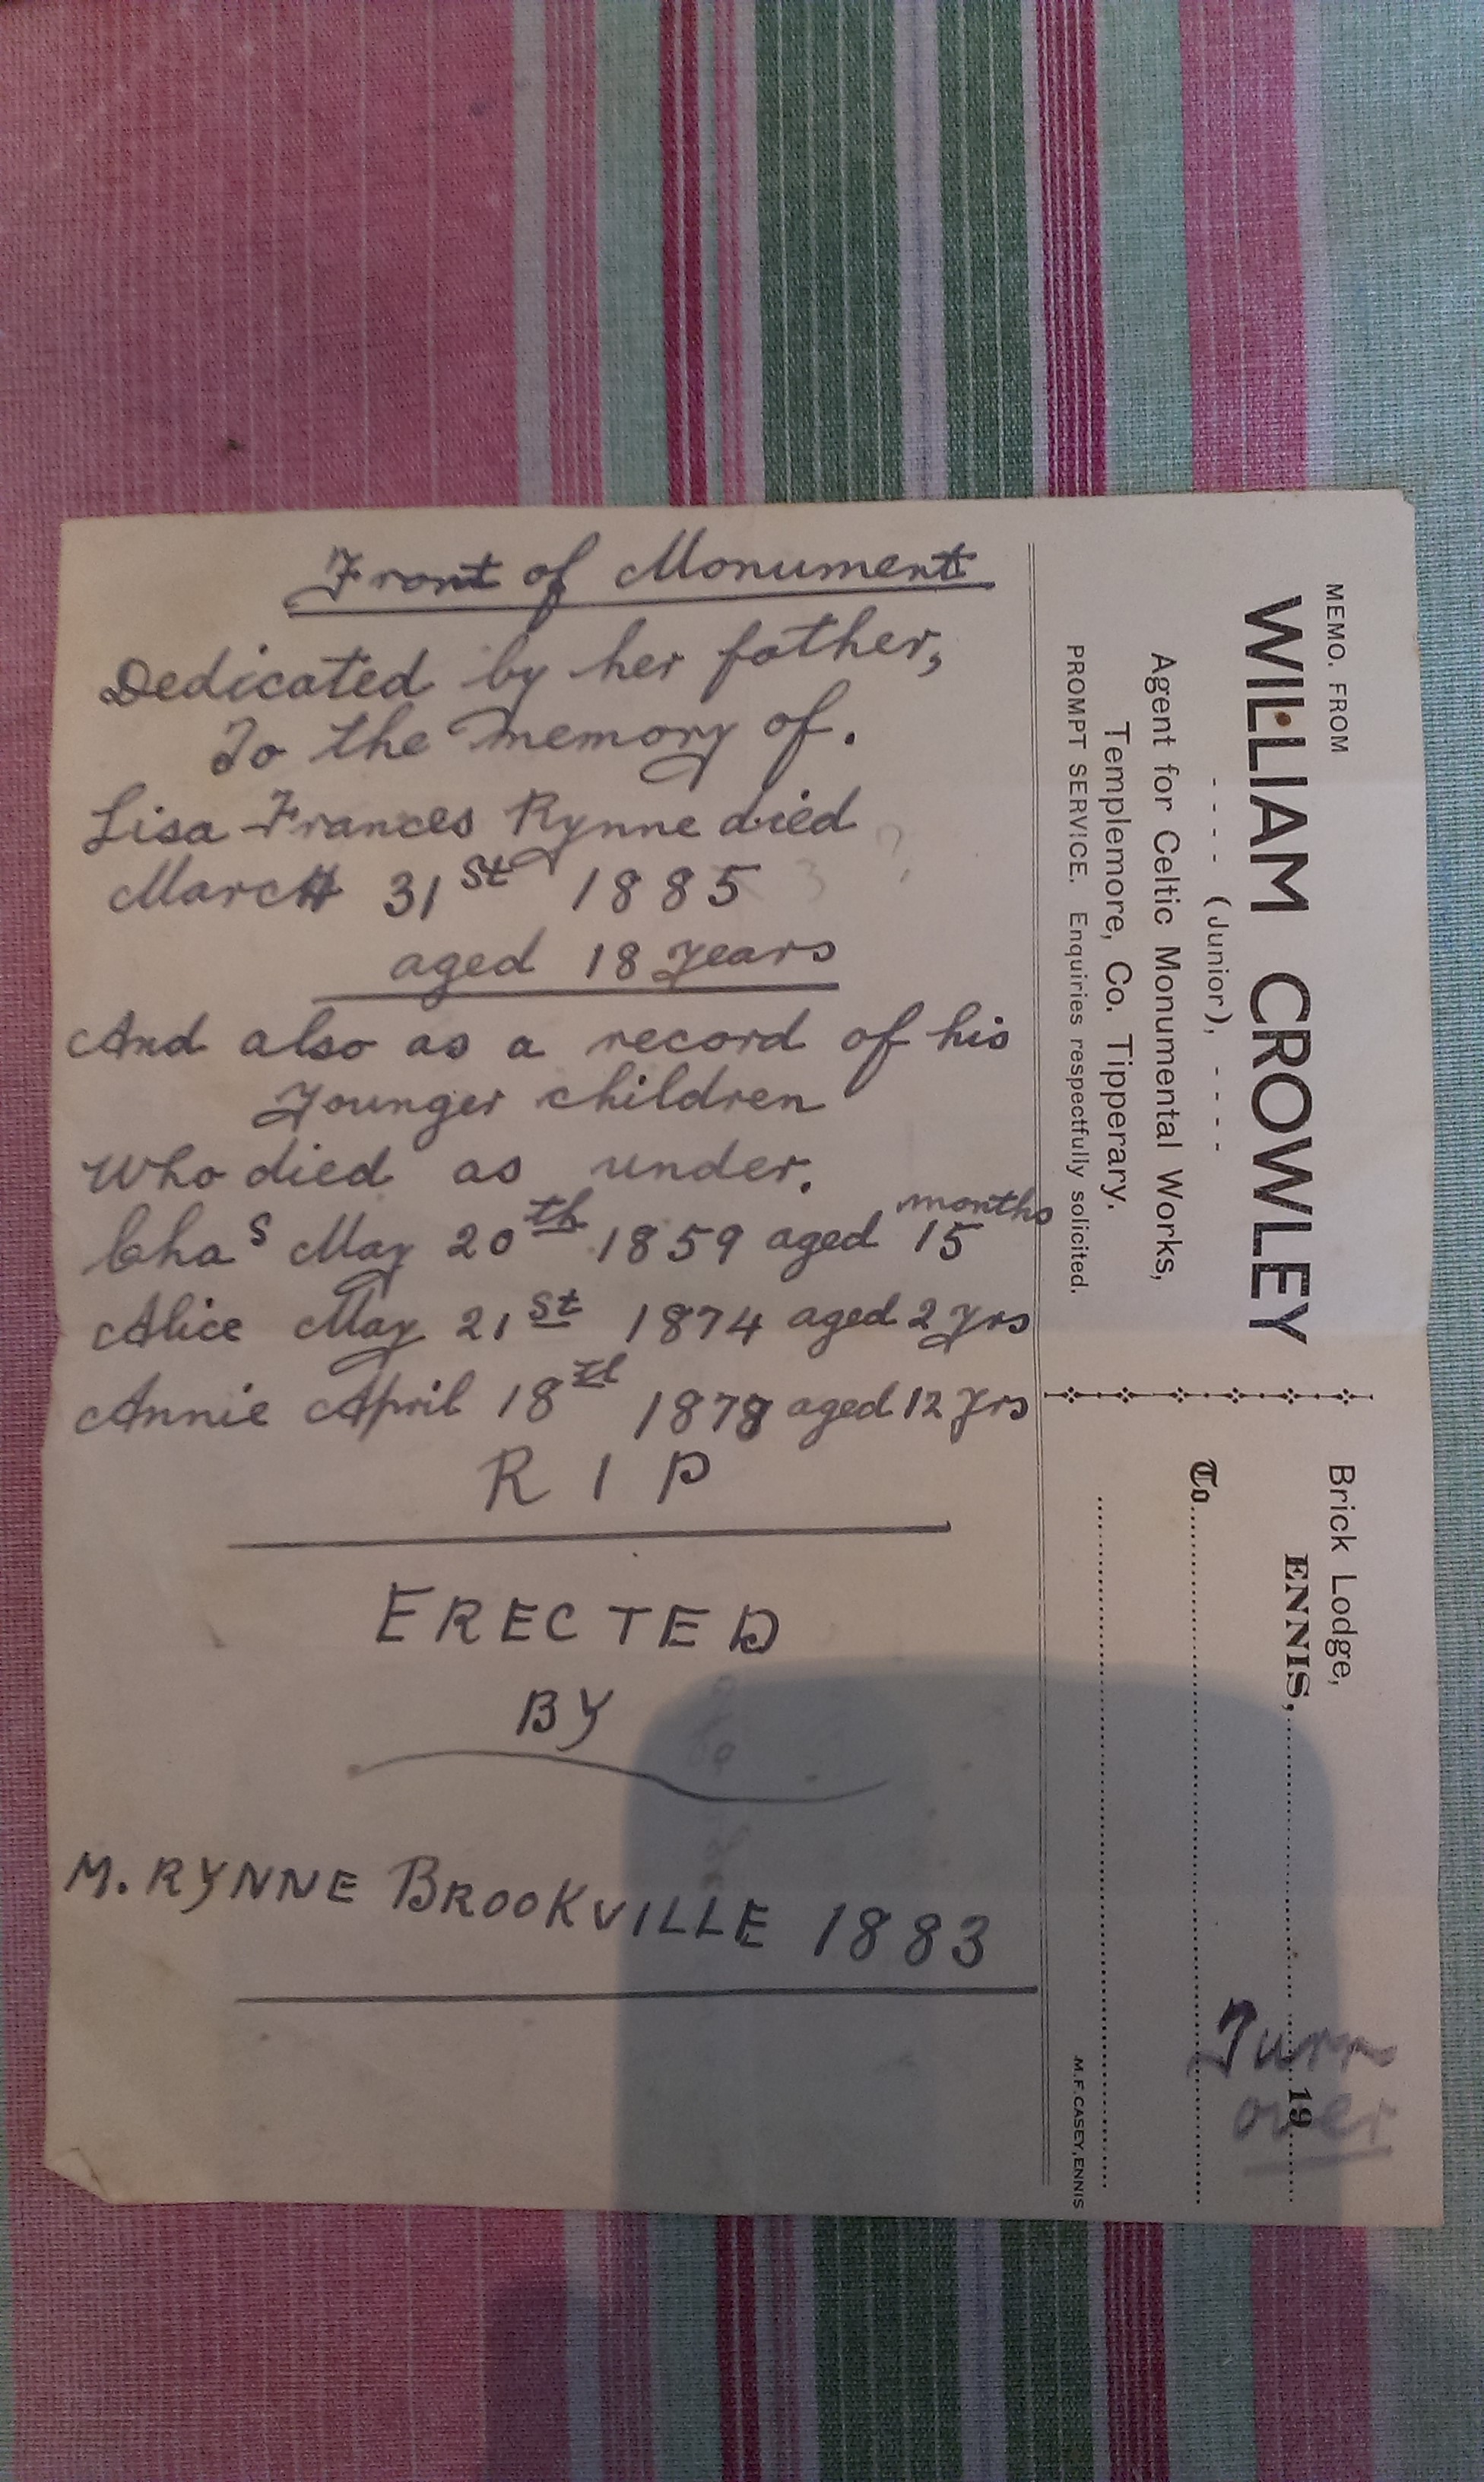 Front of Monument
Dedicated by her father,
To the memory of.
Lisa Frances Rynne died
March 31st 1885 3 ?
aged 18 years
And also as a record of his
Younger children
Who died as under.
Chas May 20th 1859 aged 15 months
Alice May 21st 1874 aged 2 yrs
Annie April 18th 1878 aged 12 yrs
R I P
ERECTED
BY
M. RYNNE BROOKVILLE 1883
MEMO. FROM
WILLIAM CROWLEY
- - - - (Junior), - - - -
Agent for Celtic Monumental Works,
Templemore, Co. Tipperary.
PROMPT SERVICE. Enquiries respectfully solicited.
Brick Lodge,
ENNIS, 19
To
M.F. CASEY, ENNIS
Turn
over